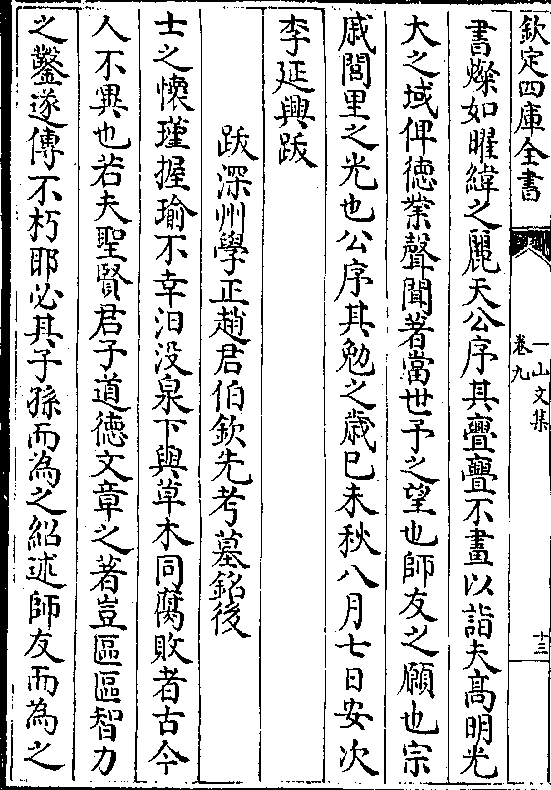 欽定四庫全書
一山文集
卷九
十三
書燦如曜緯之麗天公序其亹亹不畫以詣夫高明光
大之域俾德業聲聞著當世予之望也師友之願也宗
戚閭里之光也公序其勉之歲己未秋八月七日安次
李延興跋
跋深州學正趙君伯欽先考墓銘後
士之懷瑾握瑜不幸汨没泉下與草木同腐敗者古今
人不異也若夫聖賢君子道德文章之著豈區區智力
之鑿遂傳不朽耶必其子孫而為之紹述師友而為之